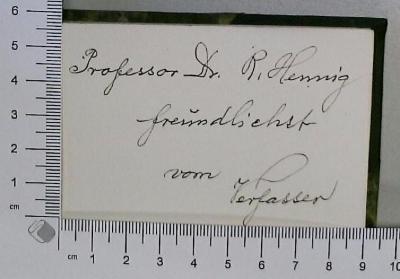 Professor Dr. R. Hennig
freundlichst
vom
Verfasser
6
5
4
3
2
1
cm
cm 1 2 3 4 5 6 7 8 9 10